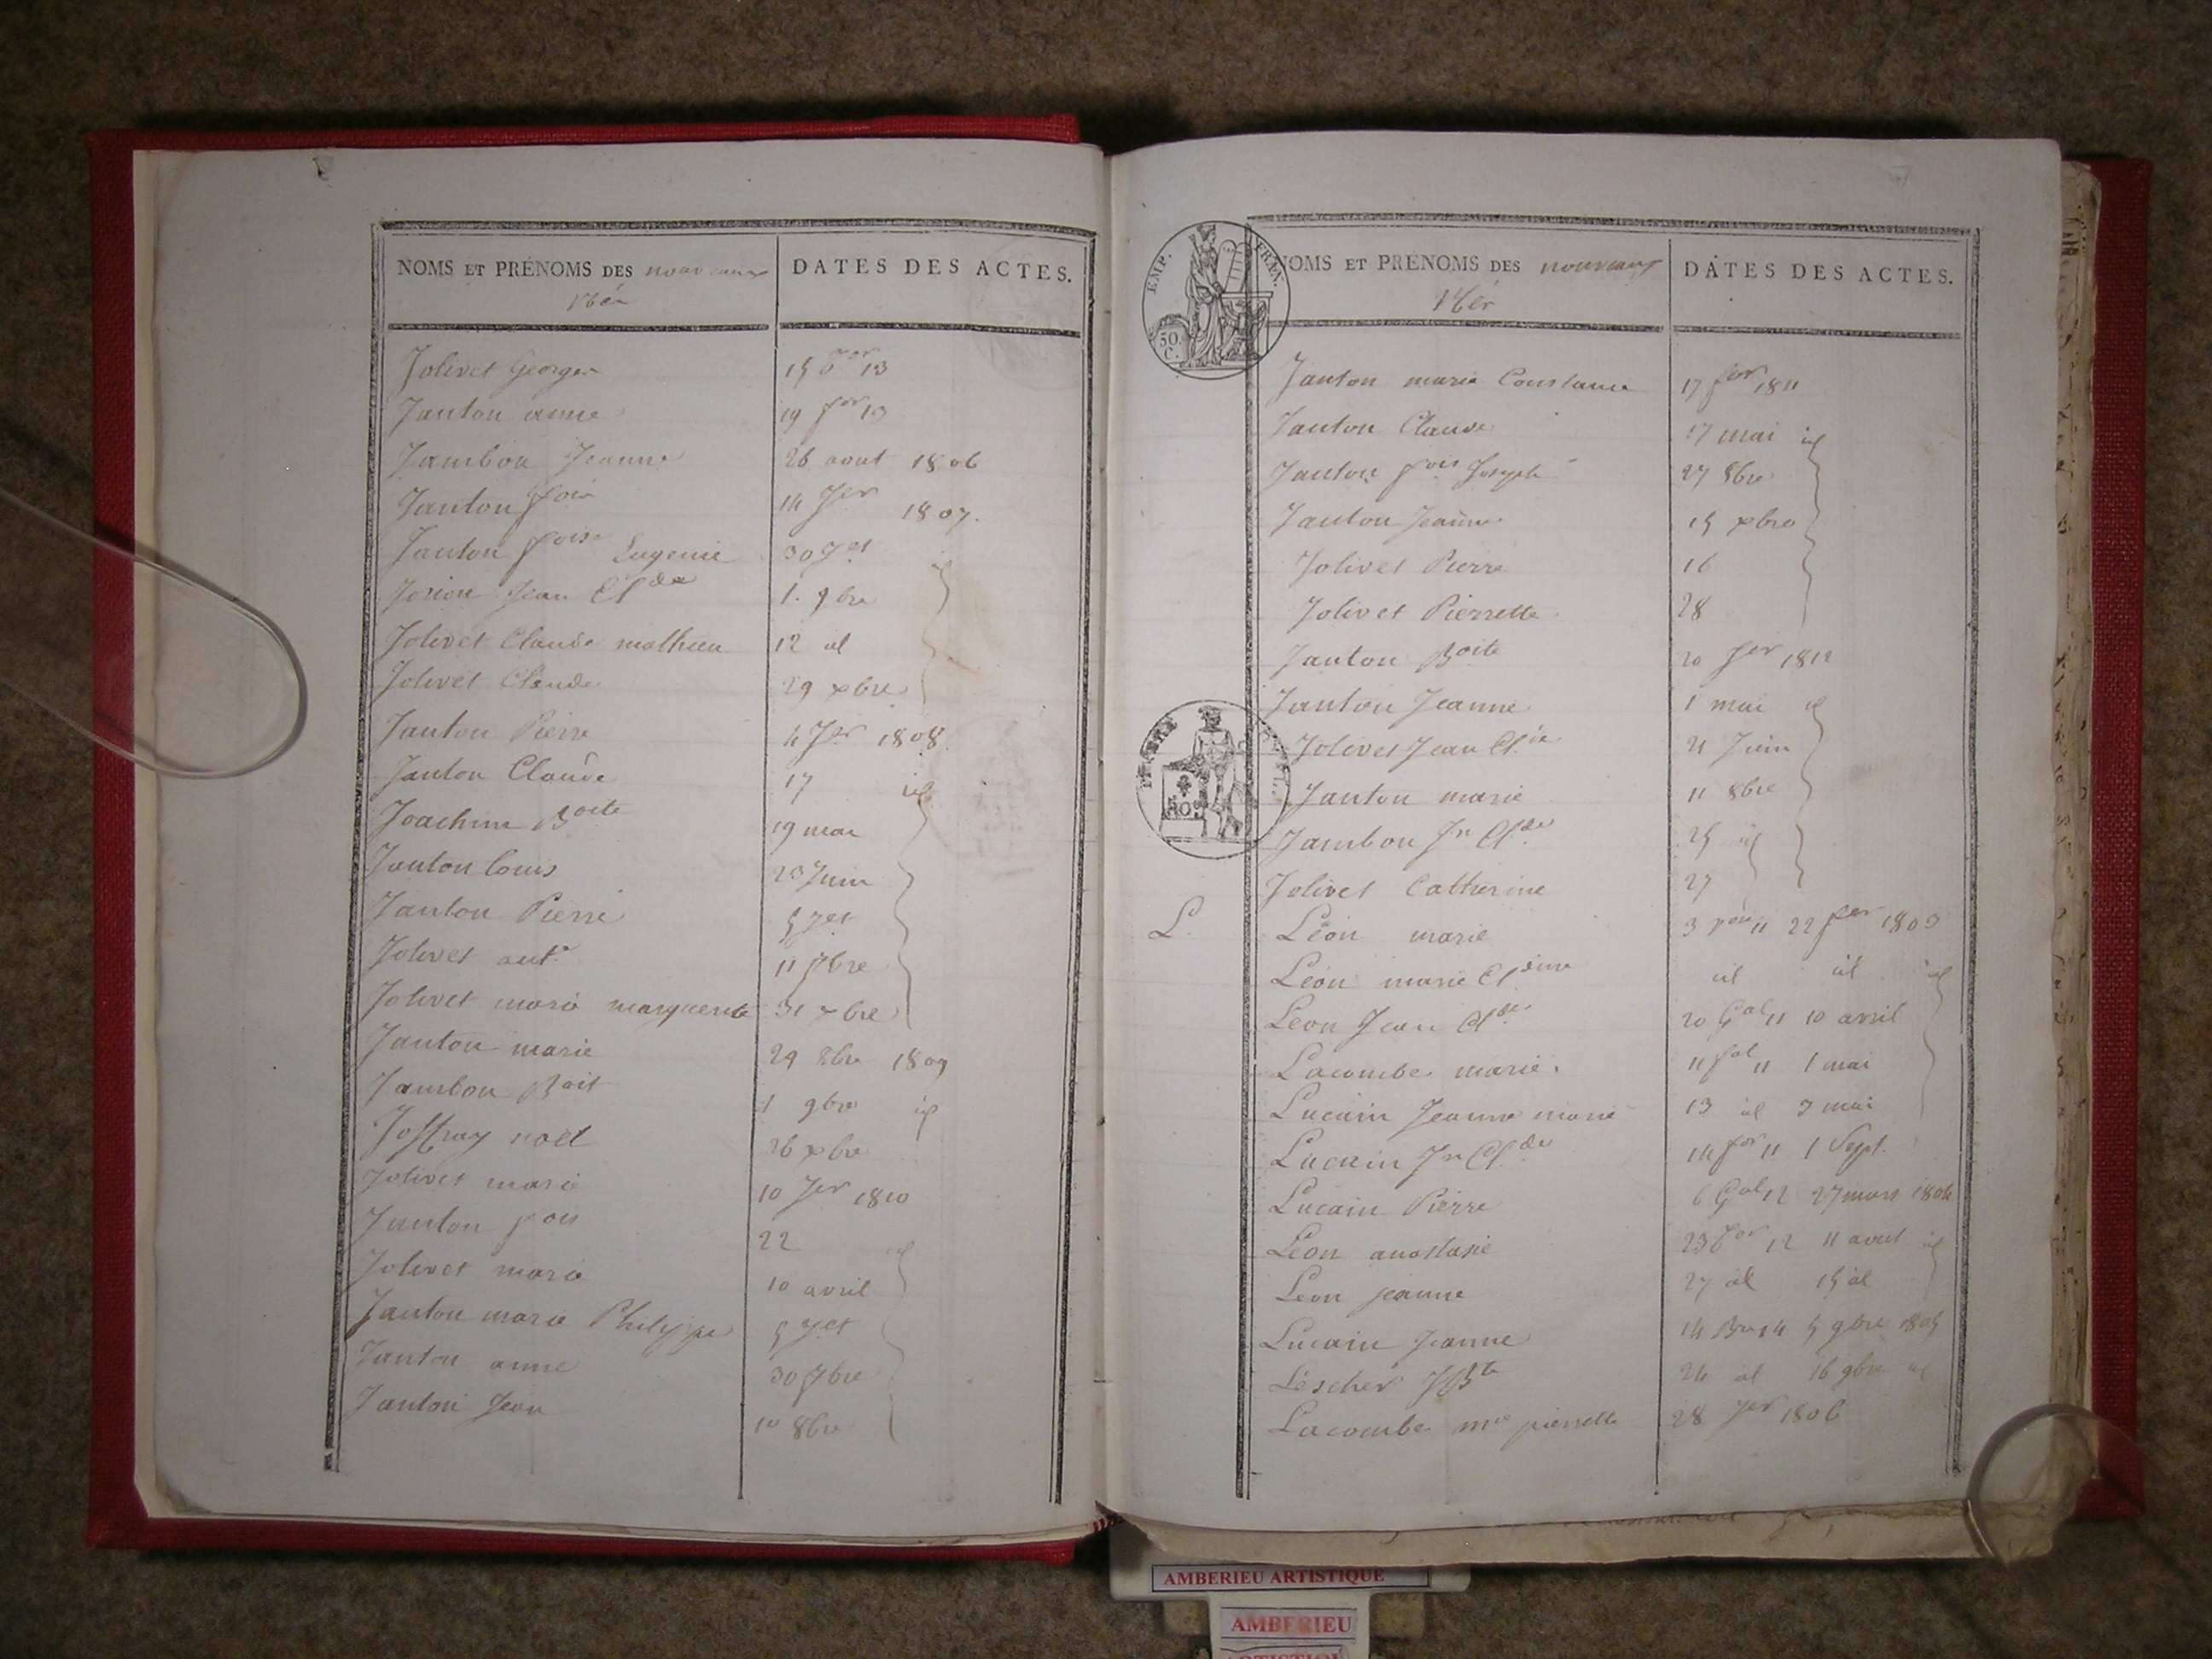 NOMS ET PRÉNOMS DES nouveaux
DATES DES ACTES.
Jolivet George 15 13
Janton anne 19 13
Jambon Jeanne 26 aout 1806
Janton fois 14 Jer 1807.
Janton foise Eugenie 30 Jet
Jean Clde 1. 9bre
Jolivet Claude mathieu 12 id
Jolivet Claude 29 xbre
Janton Pierre 4 Jer 1808
Janton Claude 17 id
Joachim Boite 19 mai
Janton Louis 23 Juin
Janton Pierre 5 Jet
Jolivet ant. 11 7bre
Jolivet marie marguerite 31 xbre
Janton marie 29 8bre 1809
Jambon Boit 1 9bre id
Joffray noël 26 xbre
Jolivet marie 10 Jer 1810
Janton fois 22 id
Jolivet marie 10 avril
Janton marie Philippe 5 Jet
Janton anne 30 7bre
Janton Jean 10 8bre
EMP. FRAN.
50. C.
NOMS ET PRÉNOMS DES nouveaux
DATES DES ACTES.
Janton marie Constance 17 fer 1811
Janton Claude 17 mai id
Janton fois Joseph 27 8bre
Janton Jeanne 15 xbre
Jolivet Pierre 16
Jolivet Pierrette 28
Janton Boite 20 Jer 1812
Janton Jeanne 1 mai id
Jolivet Jean 21 Juin
Janton marie 11 8bre
Jambon Jn Clde 25 id
Jolivet Catherine 27
L. Léon marie 3 11 22 fer 1803
Léon marie id id id
Léon Jean Clde 20 Gal 11 10 avril
Lacombe marie. 11 fal 11 1 mai
Lucain Jeanne marie 13 id 3 mai
Lucain Jn Clde 14 for 11 1 Sept.
Lucain Pierre 6 Gal 12 27 mars 1804
Léon anastasie 23 12 11 aout id
Léon jeanne 27 id 15 id
Lucain Jeanne 14 Bre 14 5 9bre 1805
Lescher JBte 24 id 16 9bre id
Lacombe mie pierrette 28 Jer 1806
AMBERIEU ARTISTIQUE
AMBERIEU